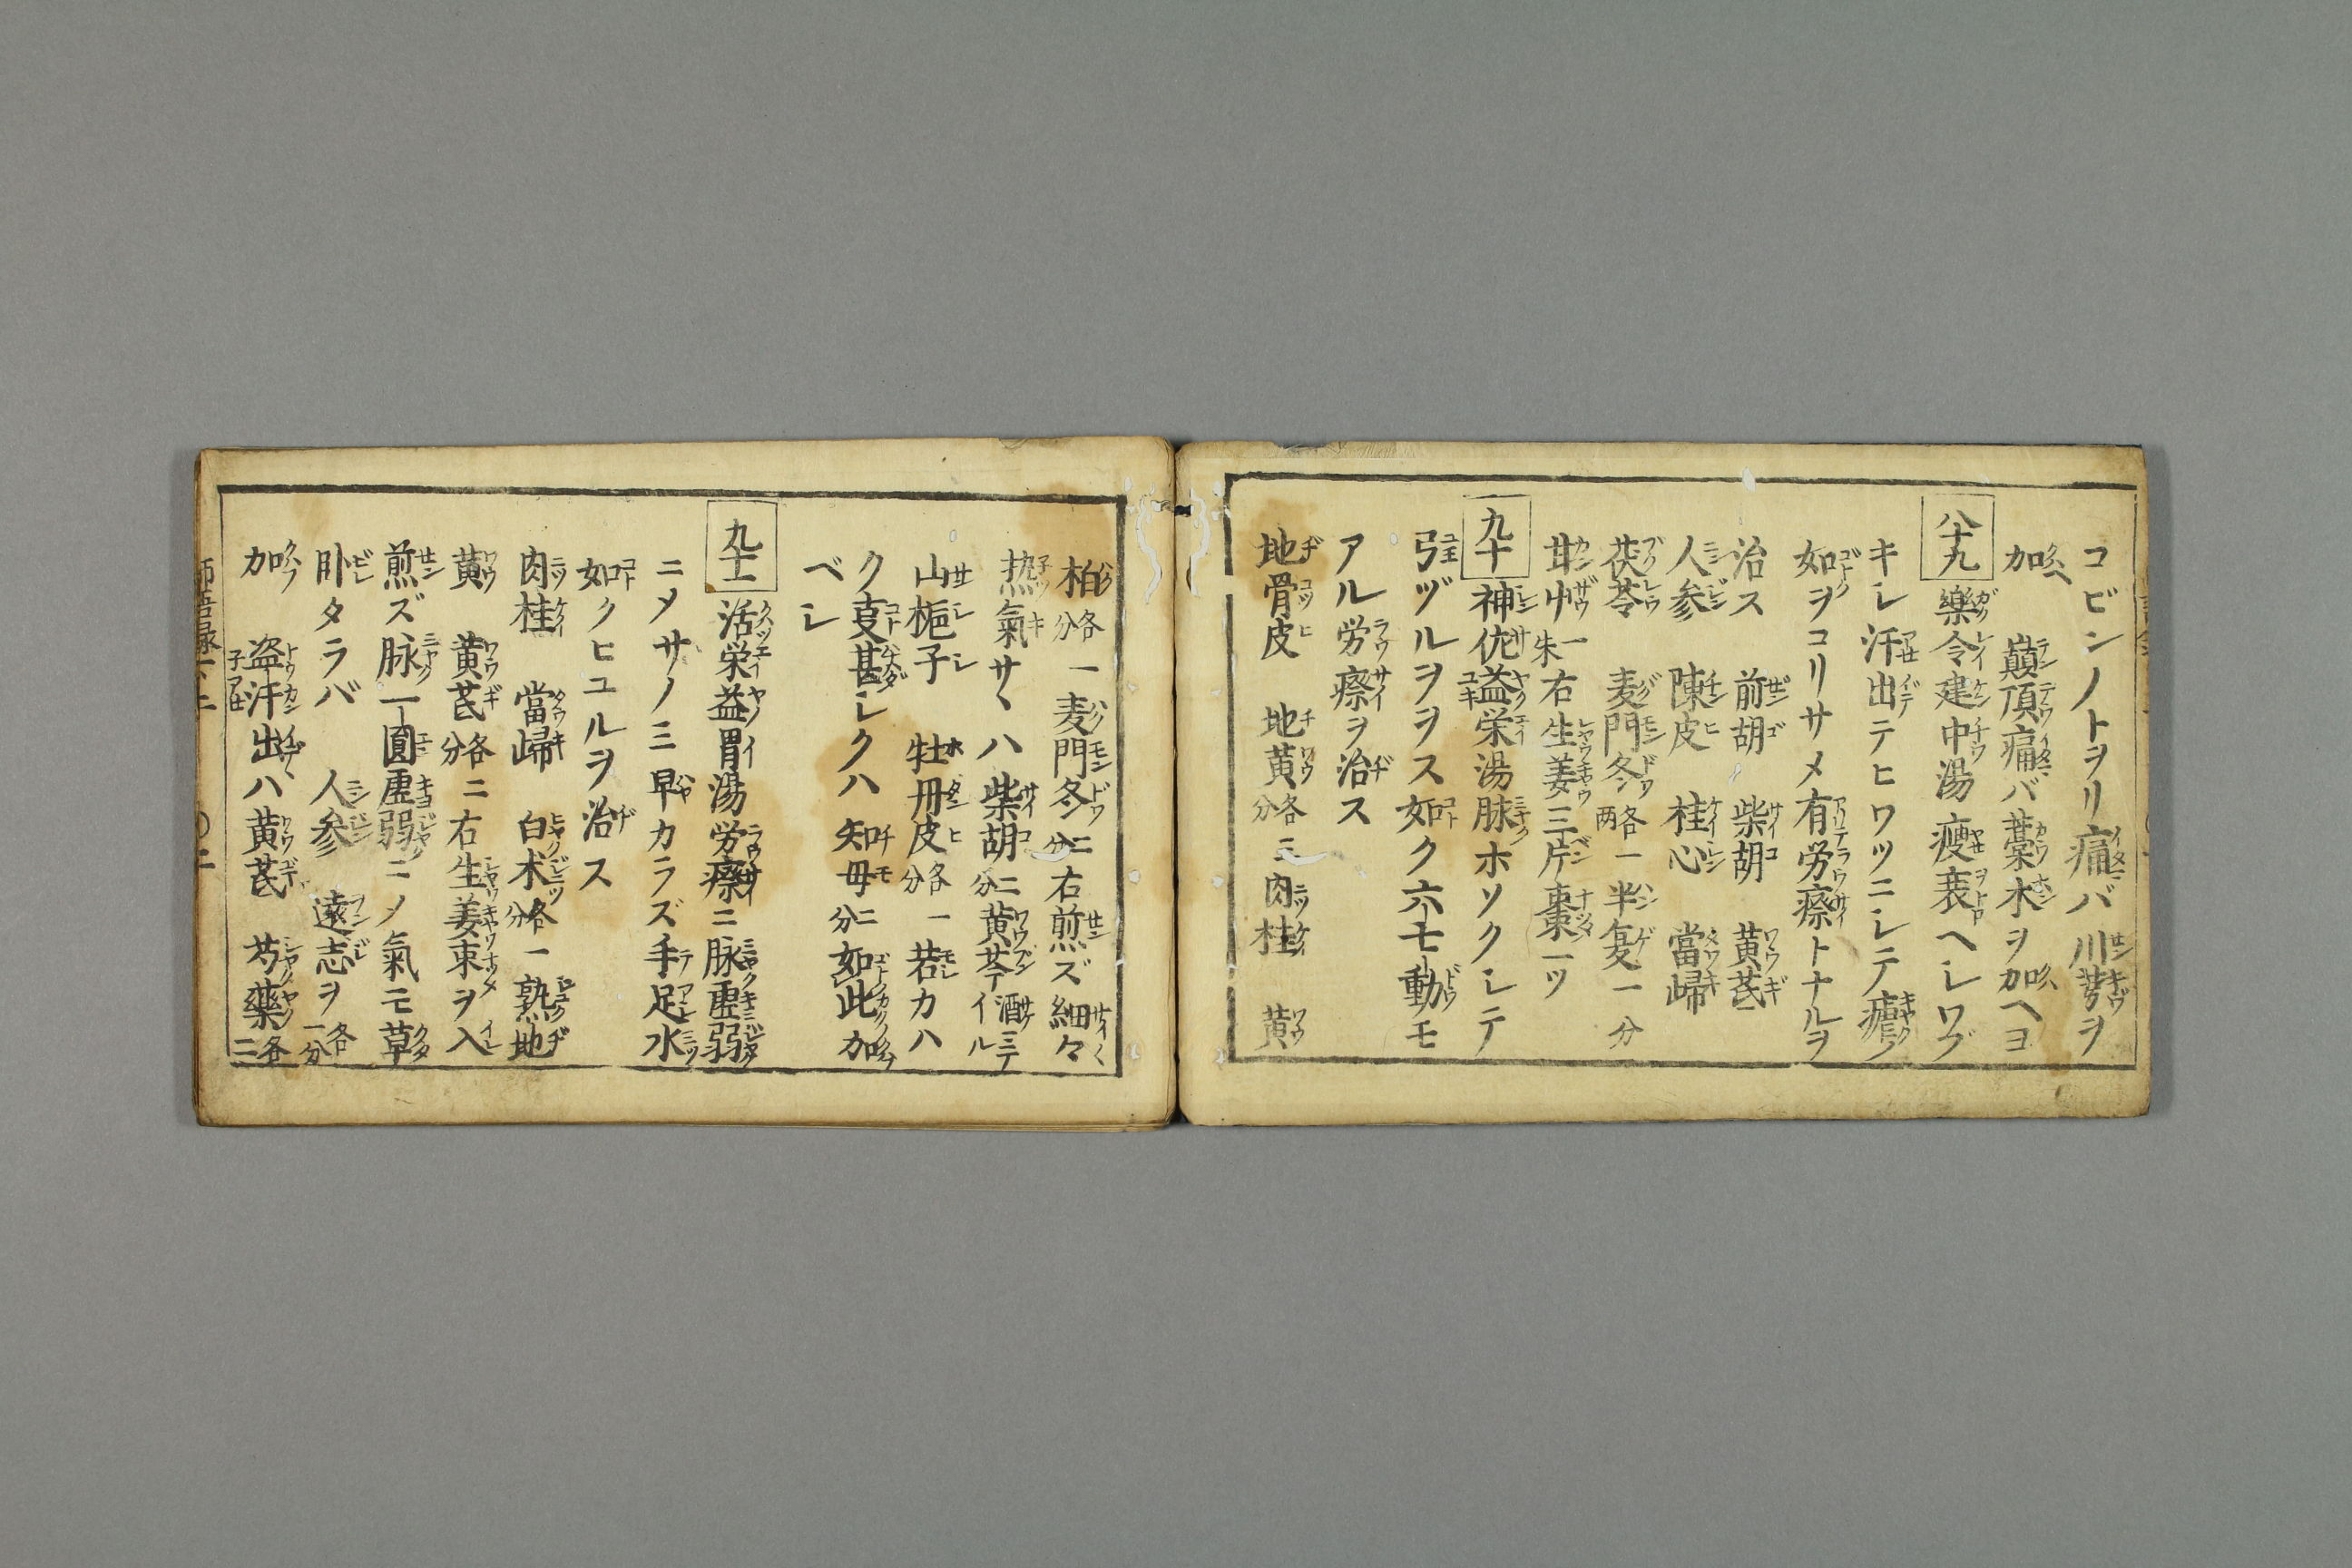 コビンノトヲリ痛バ 川芎ヲ
加 巓頂痛バ藁本ヲ加ヘヨ
八十九 樂令建中湯 痩衰ヘレワヅ
キレ汗出テヒワツニレテ瘧ノ
如ヲコリサメ有労瘵トナルヲ
治ス 前胡 柴胡 黄芪
人参 陳皮 桂心 當歸
茯苓 麦門冬各一両半夏一分
甘艸一朱右生姜三片棗一ツ
九十 神佐益栄湯脉ホソクレテ
弓ヅルヲヲス如ク六七動モ
アル労瘵ヲ治ス
地骨皮 地黄各二分肉桂 黄
柏各一分麦門冬二分右煎ズ細々
熱氣サヽハ柴胡二分黄芩酒ニテイル
山梔子 牡丹皮各一分若カハ
ク叓甚レクハ 知母二分如此加
ベレ
九十一 活栄益胃湯労瘵ニ脉虚弱
ニメサノミ早カラズ手足水
如クヒユルヲ治ス
肉桂 當歸 白朮各一分熟地
黄 黄芪各二分右生姜束ヲ入
煎ズ脉一圓虚弱ニメ氣モ草
臥タラバ 人参 遠志ヲ各一分
加 盗汗出ハ黄芪 芍藥各二